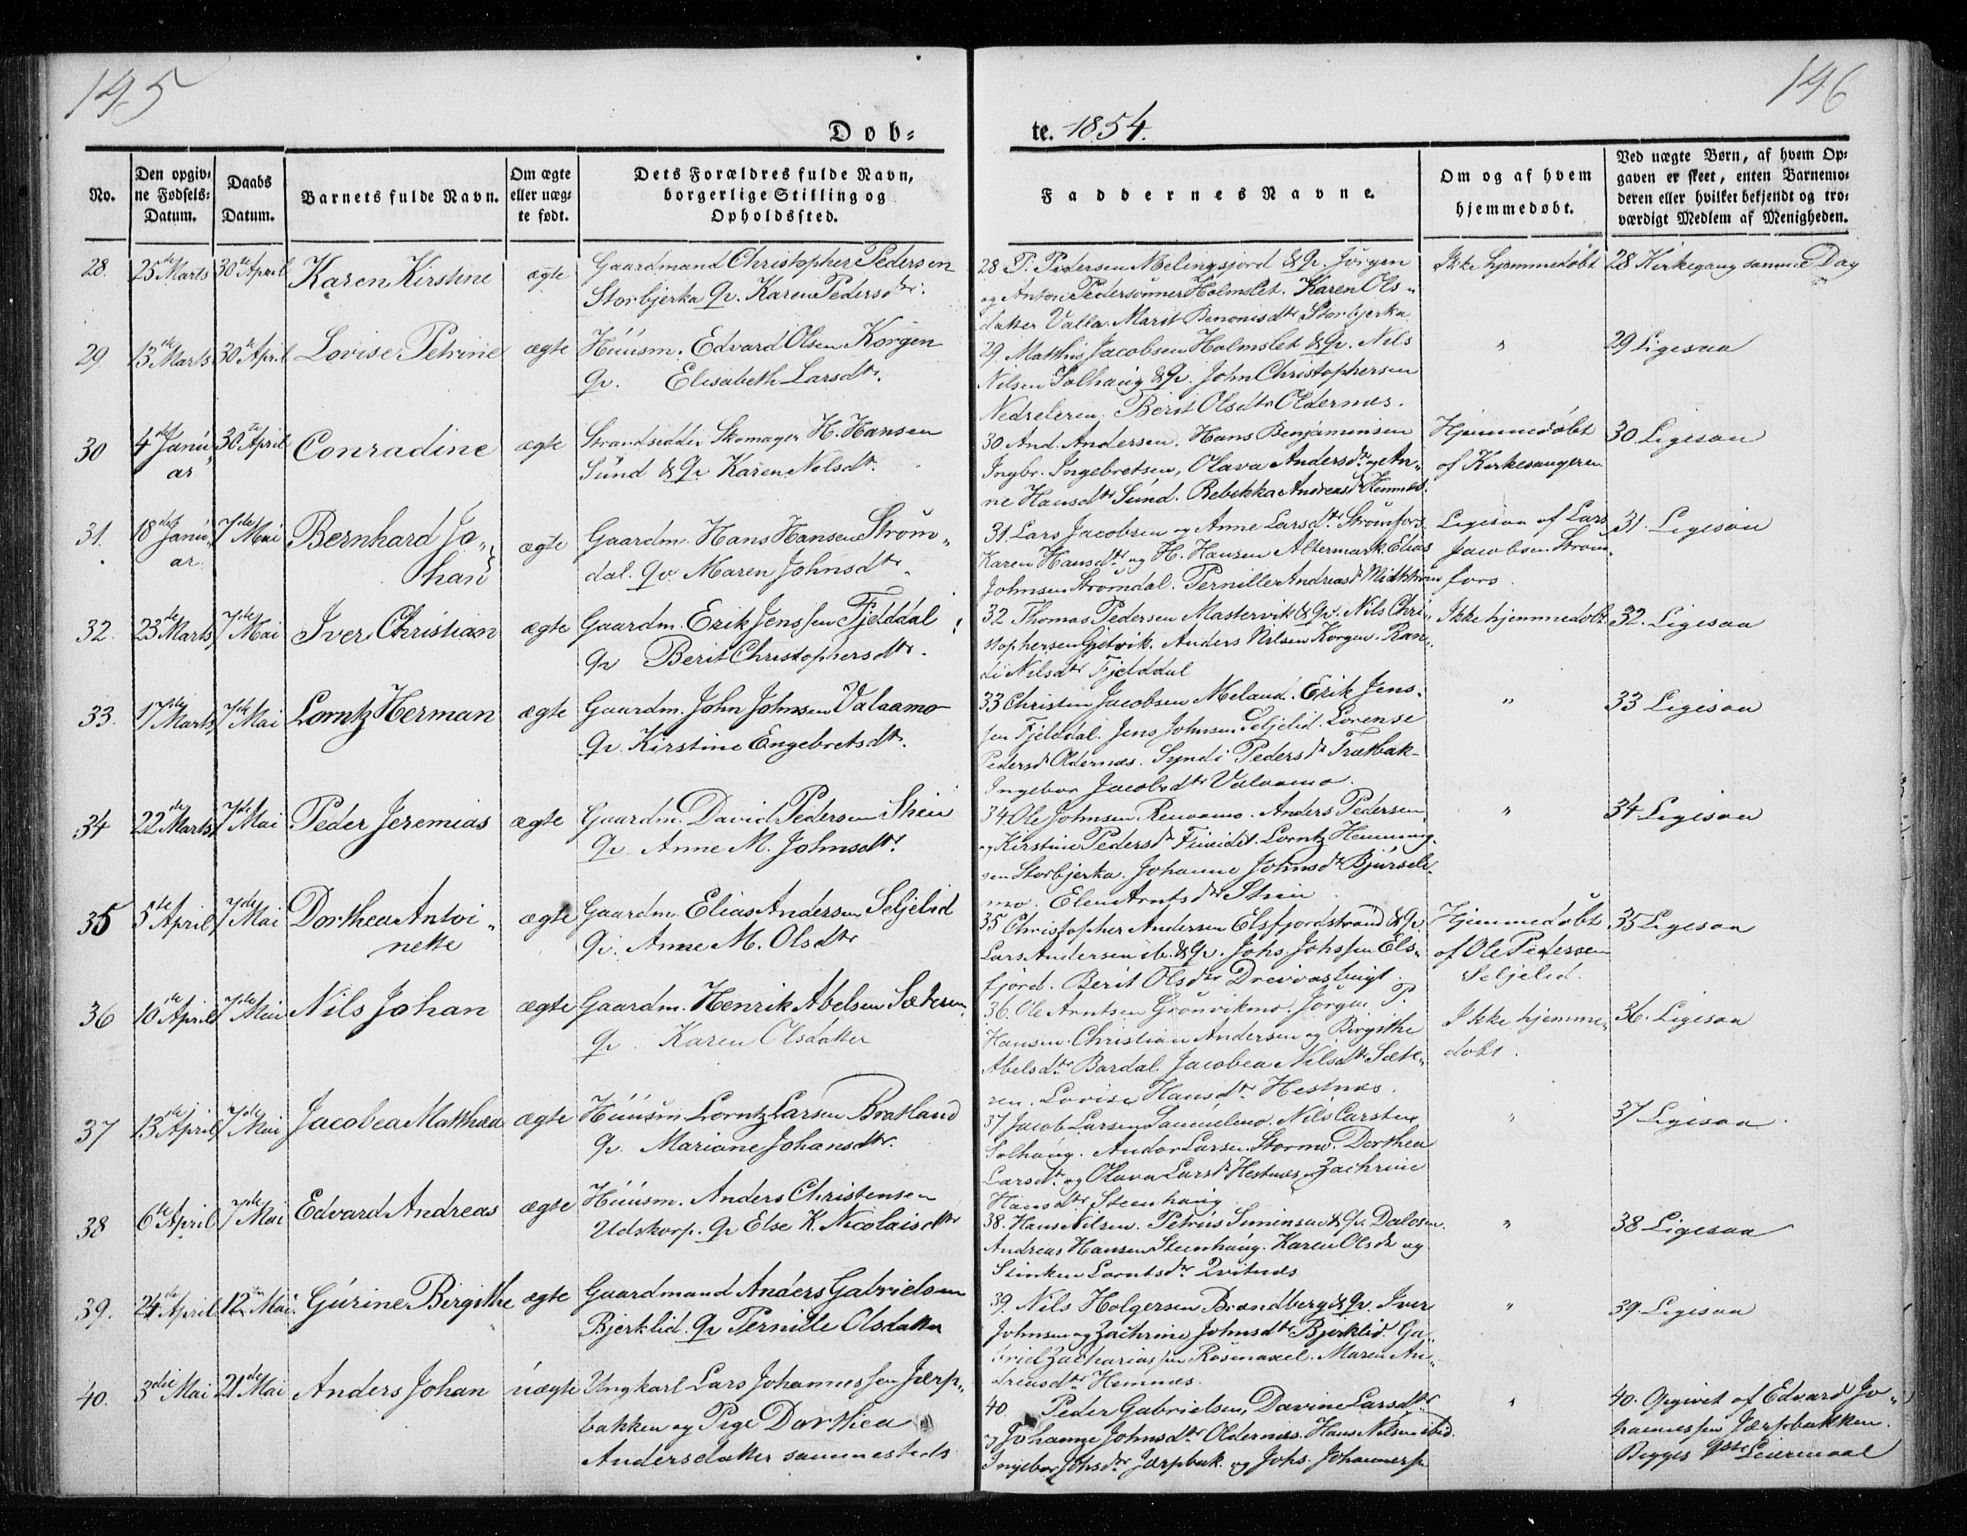 195
196
Døb=
te. 1854.
No.
Den opgiv=
ne Fødsels=
Datum.
Daabs
Datum.
Barnets fulde Navn.
Om ægte
eller uæg=
te født.
Dets Forældres fulde Navn,
borgerlige Stilling og
Opholdssted.
Faddernes Navne.
Om og af hvem
hjemmedøbt.
Ved uægte Børn, af hvem Op=
gaven er skeet, enten Barnemo=
deren eller hvilket bekjendt og tro=
værdigt Medlem af Menigheden.
28. 25de Marts 30te April Karen Kirstine ægte
Gaardmand Christopher Pedersen
Storbjerka Qv. Karen Pedersdtr.
28 P. Pedersen Melingsjord & Qv. Jørgen
og Anton Pedersønner Holmslet. Karen Ols-
datter Valla. Marit Benonisdtr Storbjerka
Ikke hjemmedøbt
28 Kirkegang samme Dag
29 13de Marts 30te April Lovise Petrine ægte
Huusm. Edvard Olsen Korgen
Qv. Elisabeth Larsdtr.
29. Matthis Jacobsen Holmslet & Qv. Nils
Nilsen Solhaug & Qv. John Christophersen
Nedreleren. Berit Olsdtr Oldernæs.
"
29 Ligesaa
30 4de Janu-
ar 30te April Conradine ægte
Strandsidder Skomager H. Hansen
Sund & Qv. Karen Nilsdtr.
30 And. Andersen. Hans Benjaminsen
Ingbr. Ingebretsen, Olava Andersdtr og An-
ne Hansdtr Sund. Rebekka Andreasdr Hemnæs.
Hjemmedøbt
af Kirkesangeren
30 Ligesaa
31. 18de Janu-
ar. 7de Mai Bernhard Jo-
han ægte
Gaardm. Hans Hansen Strøm-
dal. Qv. Maren Johnsdtr.
31. Lars Jacobsen og Anne Larsdtr Strømfors
Karen Hansdtr og H. Hansen Altermark. Elias
Johnsen Strømdal. Pernille Andreasd
Ligesaa af Lars
Jacobsen Strøm-
fors.
31. Ligesaa
32. 23de Marts 7de Mai Iver Christian ægte
Gaardm. Erik Jenssen Fjeldaal
Qv Berit Christophersdtr.
32 Thomas Pedersen Mastervik & Qv. Nils Chri-
stophersen Gjetvik. Anders Nilsen Korgen. Ran-
di Nilsdtr Fjelddal
Ikke hjemmedøbt
32. Ligesaa
33. 17de Marts 7de Mai Lorntz Herman ægte
Gaardm. John Johnsen Valaamo
Qv. Kirstine Engebretsdtr.
33 Christen Jacobsen Meland. Erik Jens-
sen Fjeldal. Jens Johnsen Seljelid. Lorense
Pedersd Oldernæs. Syndi Pedersdr Trætbak-
Ingebor Jacobsdtr Valaamo.
"
33 Ligesaa
34 22de Marts 7de Mai Peder Jeremias ægte
Gaardm. David Pedersen Stien
Qv. Anne M. Johnsdtr.
34 Ole Johnsen Renaamo. Anders Pedersen
og Kirstine Pedersdr Fineidet. Lorntz Henning-
sen Storbjerka. Johanne Johnsdr Bjursel-
mo. Elen Arntsdtr Stien
"
34 Ligesaa
35 5te April 7de Mai Dorthea Antoi-
nette ægte
Gaardm. Elias Andersen Seljelid
Qv. Anne M. Olsdtr
35 Christopher Andersen Elsfjordstrand & Qv
Lars Andersen ib. & Qv. Johs Johssen Els-
fjord. Berit Olsdtr Drevvas
Hjemmedøbt
af Ole Pedersen
Seljelid.
35 Ligesaa
36 10de April 7de Mai Nils Johan ægte
Gaardm. Henrik Abelsen Sæteren
Qv. Karen Olsdatter
36. Ole Arntsen Grønvikmo. Jørgen P.
Hansen. Christian Andersen og Birgithe
Abelsdtr Bardal. Jacobea Nilsdtr Sæte-
ren. Lovise Hansdtr Hestnæs.
Ikke hjemme-
døbt.
36. Ligesaa
37 13de April 7de Mai Jacobea Matthea ægte
Huusm. Lorntz Larsen Bratland
Qv. Mariane Johansdtr.
37 Jacob Larsen Samuelmo. Nils Carsten
Solhaug. Andor Larsen Stormo. Dorthea
Larsdtr og Olava Larsdr Hestnæs. Zachrine
Hansdtr Steenhaug
"
37 Ligesaa.
38 6te April 7de Mai Edvard Andreas ægte
Huusm. Anders Christensen
Udskorp. Qv Else K. Nicolaisdtr
38. Hans Nilsen. Petrus Simonsen & Qv. Dalosen.
Andreas Hansen Steenhaug. Karen Olsdr og
Stinken Lorntsdtr Qvitnæs
"
38 Ligesaa
39. 24de April 12te Mai. Gurine Birgithe ægte
Gaardmand Anders Gabrielsen
Bjerklid. Qv Pernille Olsdatter
39. Nils Holgersen Brandberg & Qv. Iver
Johnsen og Zachrine Johnsdtr Bjerklid. Ga-
briel Zachariassen Rosmaael. Maren An-
dreasdtr Hemnes.
"
39. Ligesaa
40. 3die Mai 21de Mai Anders Johan uægte
Ungkarl Lars Johannessen Jærp-
bakken og Pige Dorthea
Andersdatter sammesteds
40. Peder Gabrielsen, Davine Larsdtr
og Johanne Johnsdtr Oldernæs. Hans Nilsen ibid.
Ingebor Johsdtr Jærpbak. og Johs. Johannessen
"
40. Opgivet af Edvard Jo-
hannessen Jærpbakken.
Begges 1ste Leiermaal